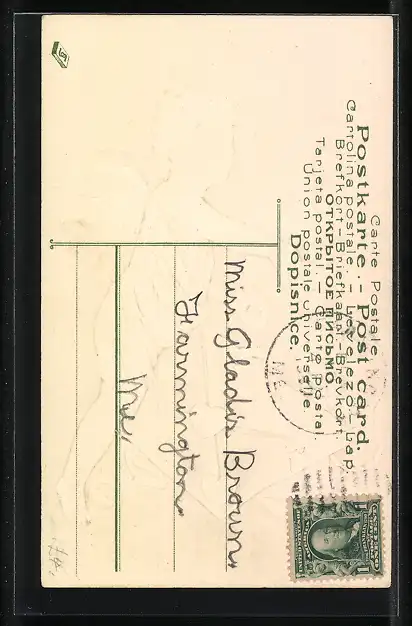 Carte Postale
Cartolina postale. – Levelezö-Lap.
Postkarte. – Post card.
Brefkort–Briefkaart.–Brevkort.
ОТКРЫТОЕ ПИСЬМО
Tarjeta postal. – Carte postal.
Union postale universelle.
Dopisnice.
ME
Miss Gladis Brown
Farmington
Me.